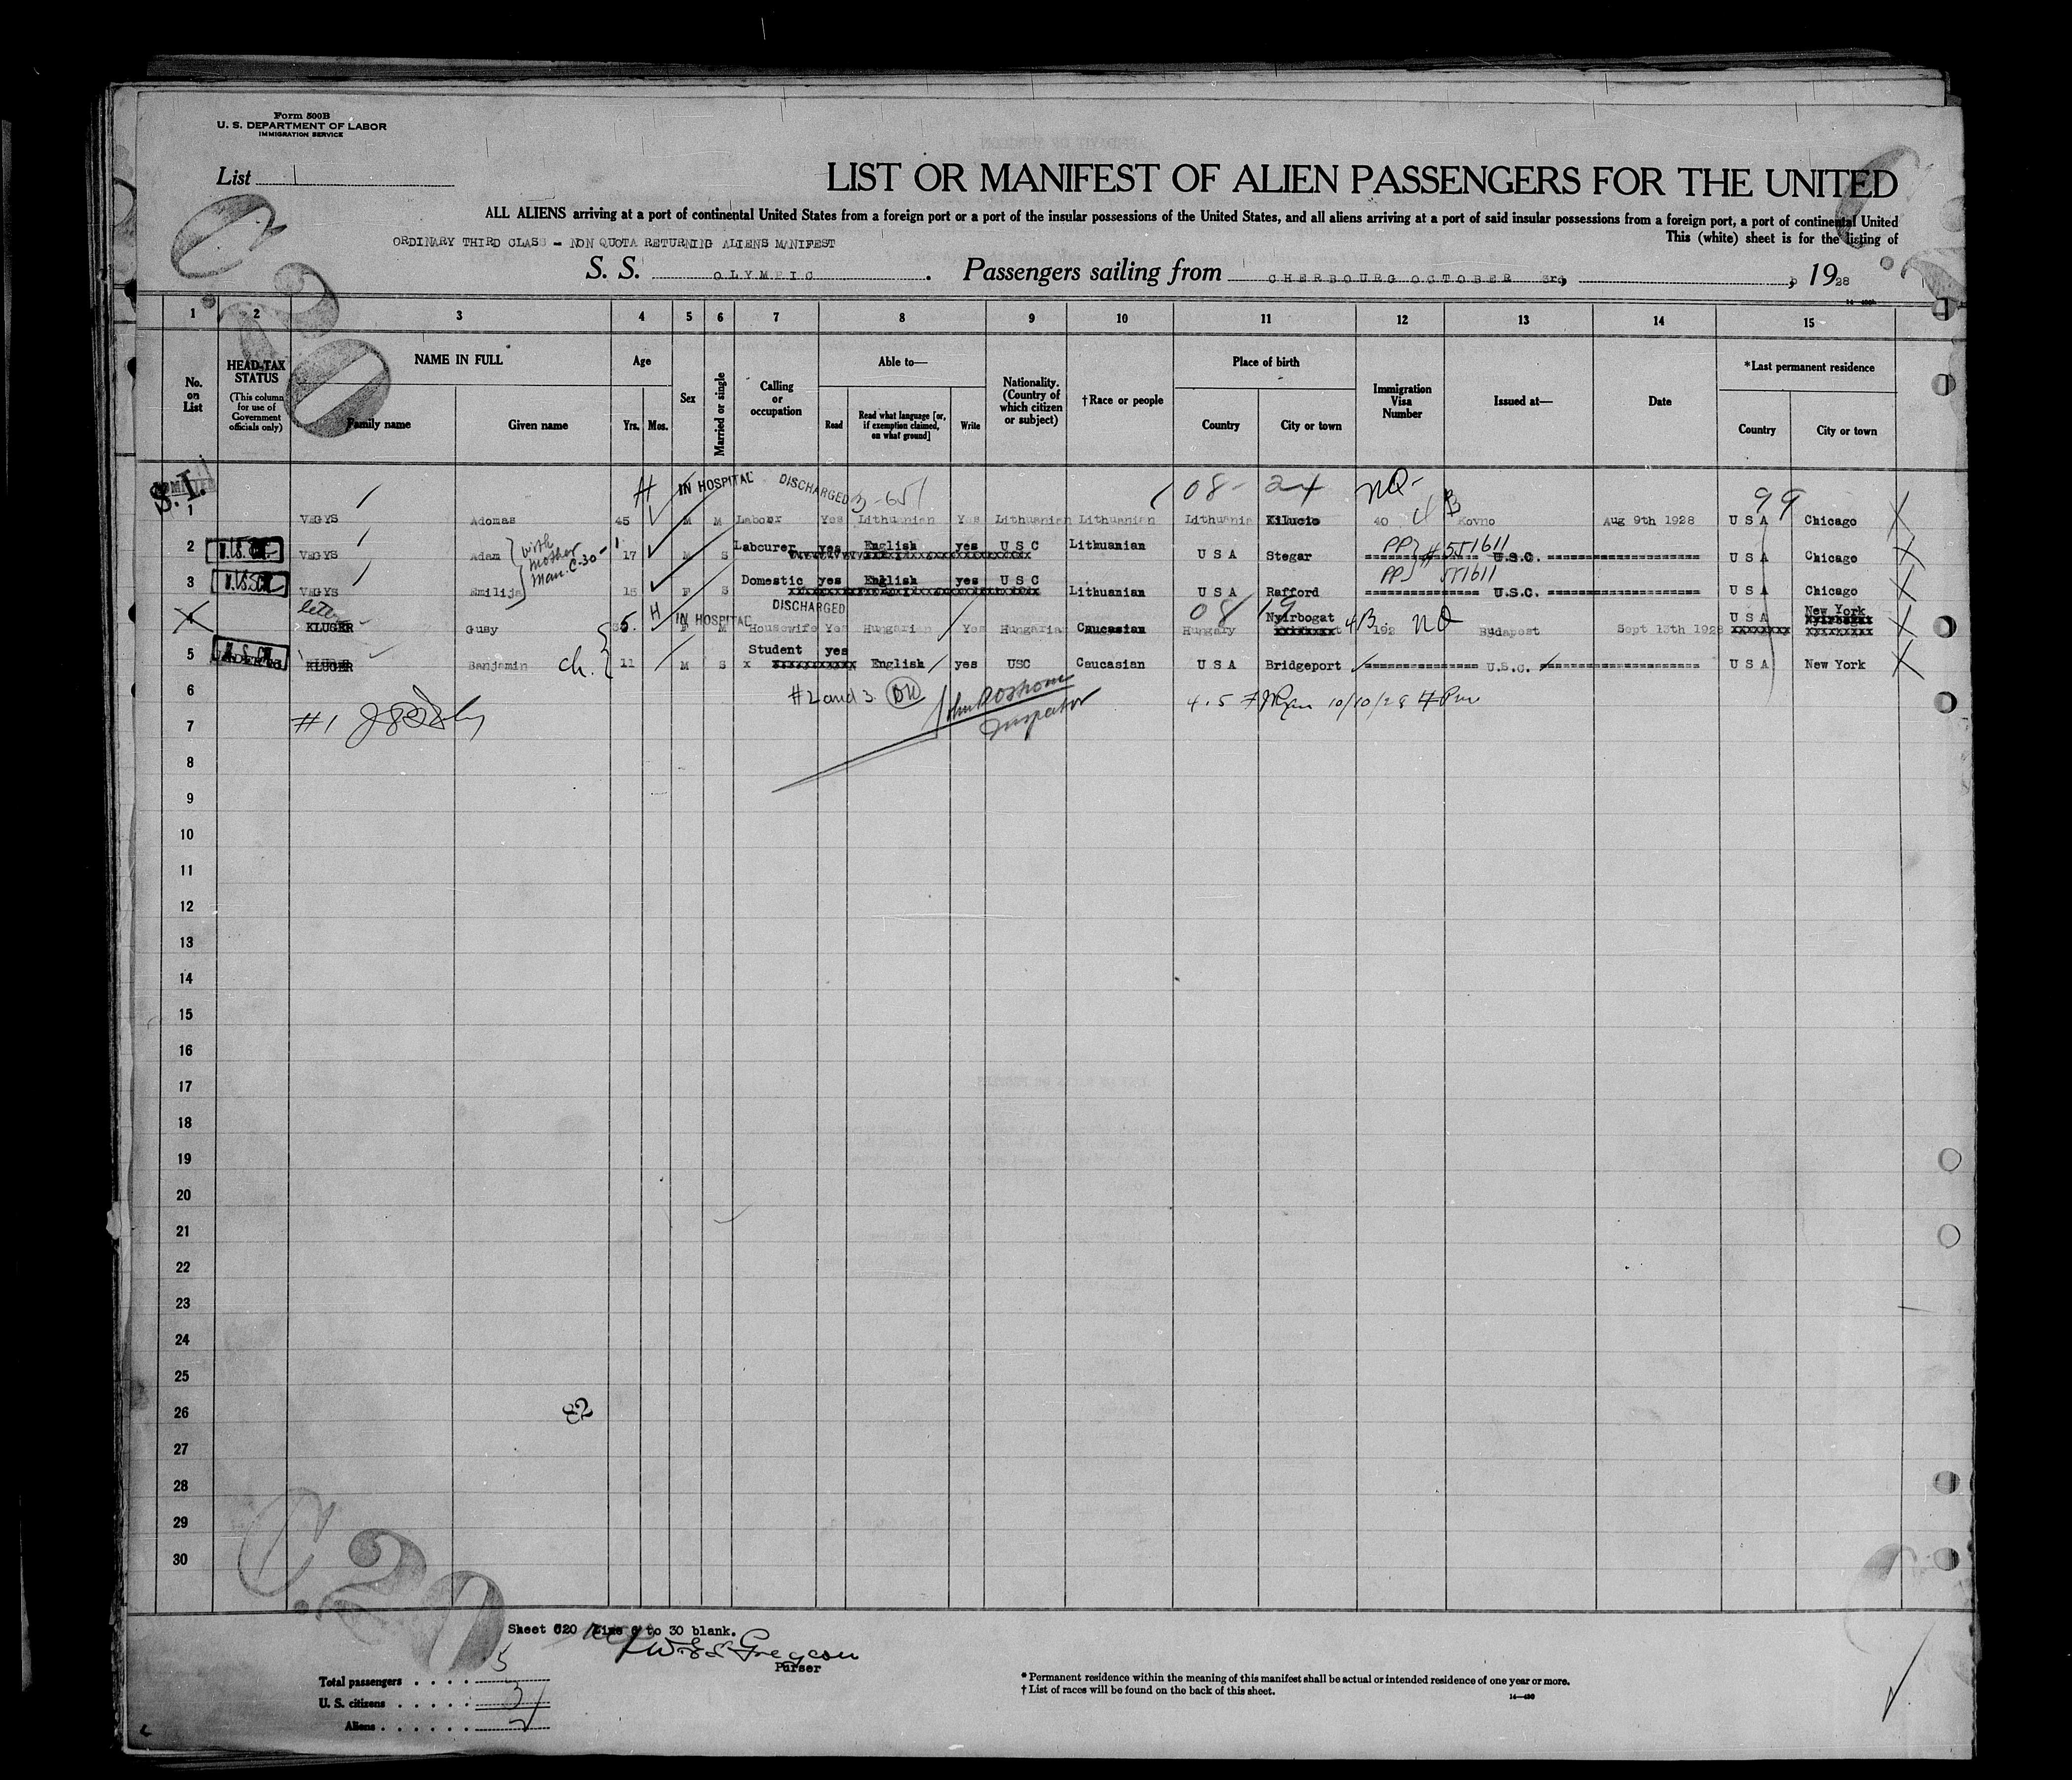 Form 500B
U. S. DEPARTMENT OF LABOR
IMMIGRATION SERVICE
List 1
LIST OR MANIFEST OF ALIEN PASSENGERS FOR THE UNITED
ALL ALIENS arriving at a port of continental United States from a foreign port or a port of the insular possessions of the United States, and all aliens arriving at a port of said insular possessions from a foreign port, a port of continental United
This (white) sheet is for the listing of
ORDINARY THIRD CLASS - NON QUOTA RETURNING ALIENS MANIFEST
S. S. OLYMPIC. Passengers sailing from CHERBOURG OCTOBER 3rd, , 1928
1 2 3 4 5 6 7 8 9 10 11 12 13 14 15
No. on List
HEAD-TAX STATUS
(This column for use of Government officials only)
NAME IN FULL
Family name Given name
Age
Yrs. Mos.
Sex
Married or single
Calling or occupation
Able to—
Read
Read what language [or, if exemption claimed, on what ground]
Write
Nationality. (Country of which citizen or subject)
†Race or people
Place of birth
Country City or town
Immigration Visa Number
Issued at—
Date
*Last permanent residence
Country City or town
S.I. ADMITTED H IN HOSPITAL DISCHARGED 3-651 08- 24 NQ- 99
1 VEGYS Adomas 45 M M Labour Yes Lithuanian Yes Lithuanian Lithuanian Lithuania Kilucio 40 Kovno Aug 9th 1928 U S A Chicago
with mother Man. C-30-1
2 VEGYS Adam 17 M S Labourer yes English yes U S C Lithuanian U S A Stegar PP #551611 U.S.C. U S A Chicago
3 VEGYS Emilija 15 F S Domestic yes English yes U S C Lithuanian U S A Rafford PP 551611 U.S.C. U S A Chicago
H IN HOSPITAL DISCHARGED 08 19
4 KLUGER Gusy F M Housewife Yes Hungarian Yes Hungarian Caucasian Hungary Nyirbogat 4B 192 NQ Budapest Sept 15th 1928 U S A New York
5 KLUGER Banjamin ch. 11 M S Student yes English yes USC Caucasian U S A Bridgeport U.S.C. U S A New York
6 #2 and 3 Inspector 4.5 10/10/28
7 #1
8
9
10
11
12
13
14
15
16
17
18
19
20
21
22
23
24
25
26
82
27
28
29
30
C20
Sheet C20 Line 6 to 30 blank.
Purser
Total passengers . . . . 5
U. S. citizens . . . . . 3
Aliens . . . . . . 2
* Permanent residence within the meaning of this manifest shall be actual or intended residence of one year or more.
† List of races will be found on the back of this sheet.